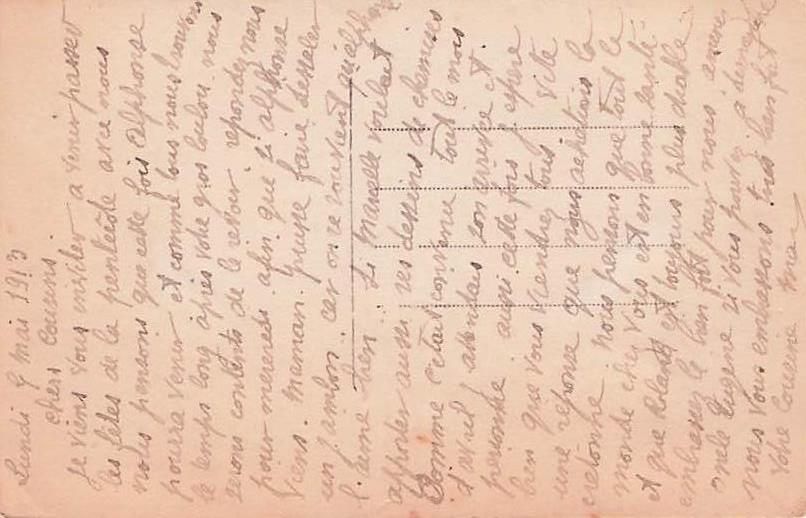 Lundi 9 mai 1913
chers cousins
Je viens vous inviter a venir passer
les fêtes de la pentecôte avec nous
nous pensons que cette fois Alphonse
pourra venir et comme tous nous trouvons
le temps long après votre gros loulou nous
serons contents de le revoir. repondez nous
pour mercredi afin que si alphonse
viens. maman puisse faire dessaler
un jambon. car on se souvient qu'elle
l'aime bien. Si Marcelle voulait
apporter aussi ses dessins de chemins
Comme c'était convenue tout le mois
d'avril j'attendais son arrivée et
personne aussi cette fois j'espère
bien que vous viendrez tous. vite
une reponse que nous achetions la
cretonne nous pensons que tout le
monde chez vous est en bonne santé
et que Roland est toujours plus diable
embrassez le bien fort pour nous ainsi
Eugene si vous pouvez
nous vous embrassons tous bien fort
Votre Cousine